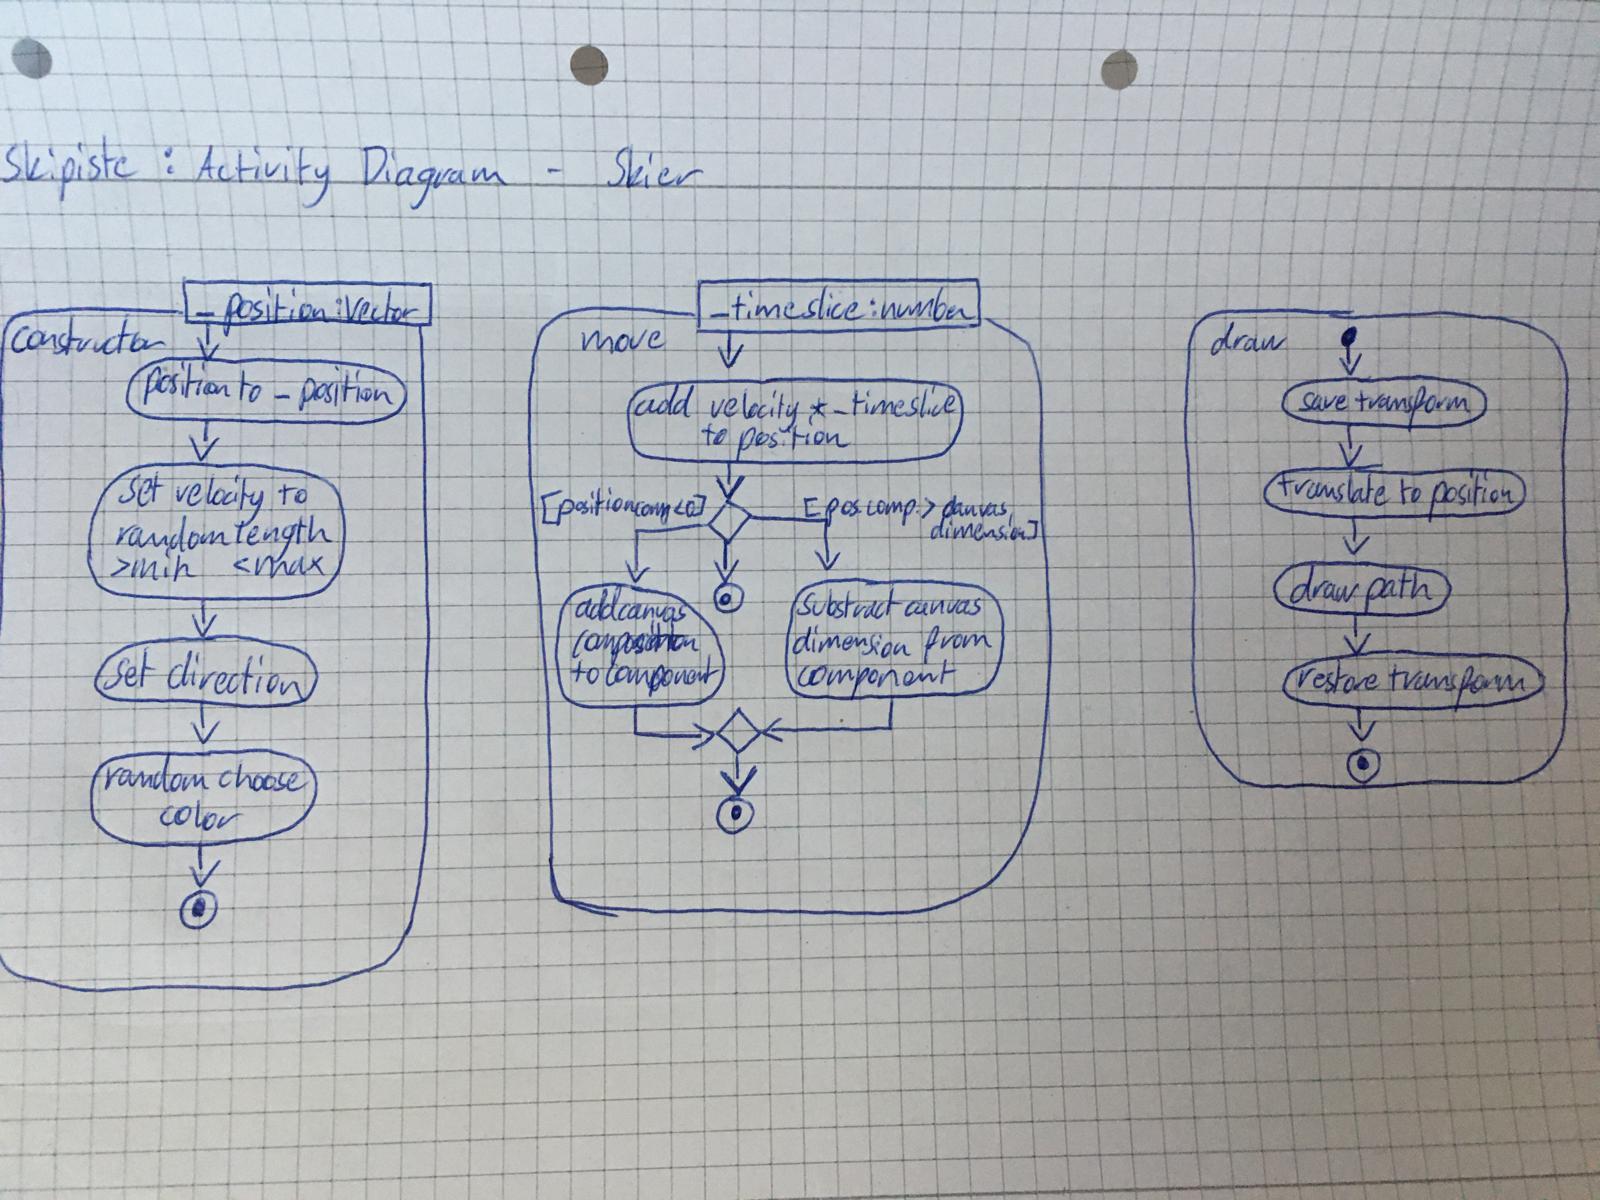 Skipiste : Activity Diagram - Skier
_ position : Vector
constructor
position to _ position
set velocity to
random length
>min <max
set direction
random choose
color
_ timeslice : number
move
add velocity * _timeslice
to position
[position comp < 0]
[pos. comp. > canvas
dimension]
add canvas
to component
substract canvas
dimension from
component
draw
save transform
translate to position
draw path
restore transform